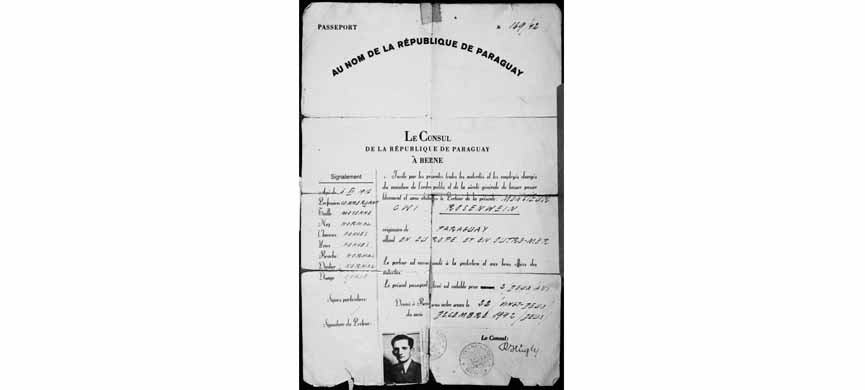 PASSEPORT
№ 169/42
AU NOM DE LA RÉPUBLIQUE DE PARAGUAY
LE CONSUL
DE LA RÉPUBLIQUE DE PARAGUAY
À BERNE
Signalement
Profession COMMERÇANT
Taille MOYENNE
Nez NORMAL
Bouche NORMAL
Menton NORMAL
Visage
Signes particuliers:
Signature du Porteur:
Invite par les présentes toutes les autorités et les employés chargés
du maintien de l'ordre public et de la sûreté générale de laisser passer
librement et sans obstacles le Porteur de la présente MONSIEUR
ROSENWEIN
originaire de PARAGUAY
allant EN EUROPE ET EN OUTRE-MER
Le porteur est recommandé à la protection et aux bons offices des
autorités.
Le présent passeport est valable pour 2 /DEUX/ ANS
Donné à Berne sous notre sceau le
du mois DECEMBRE 1942 /DEUX/
Le Consul: